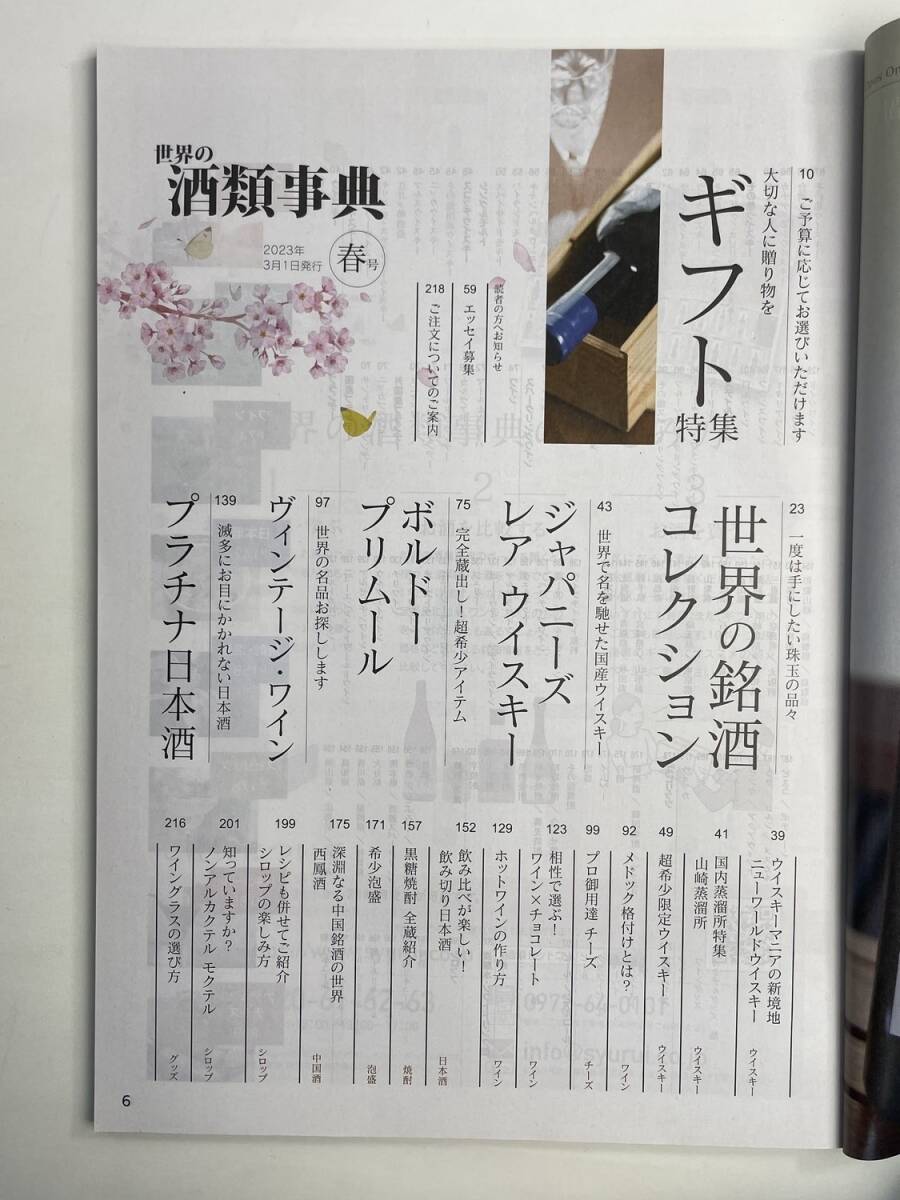 世界の
酒類事典
2023年
3月1日発行
春号
10 ご予算に応じてお選びいただけます
大切な人に贈り物を
ギフト
特集
読者の方へお知らせ
59 エッセイ募集
218 ご注文についてのご案内
23 一度は手にしたい珠玉の品々
世界の銘酒
コレクション
43 世界で名を馳せた国産ウイスキー
ジャパニーズ
レア ウイスキー
75 完全蔵出し！超希少アイテム
ボルドー
プリムール
97 世界の名品お探しします
ヴィンテージ・ワイン
139 滅多にお目にかかれない日本酒
プラチナ日本酒
39 ウイスキーマニアの新境地
ニューワールドウイスキー ウイスキー
41 国内蒸溜所特集
山崎蒸溜所 ウイスキー
49 超希少限定ウイスキー ウイスキー
92 メドック格付けとは？ ワイン
99 プロ御用達 チーズ チーズ
123 相性で選ぶ！
ワイン×チョコレート ワイン
129 ホットワインの作り方 ワイン
152 飲み比べが楽しい！
飲み切り日本酒 日本酒
157 黒糖焼酎 全蔵紹介 焼酎
171 希少泡盛 泡盛
175 深淵なる中国銘酒の世界
西鳳酒 中国酒
199 レシピも併せてご紹介
シロップの楽しみ方 シロップ
201 知っていますか？
ノンアルカクテル モクテル シロップ
216 ワイングラスの選び方 グッズ
6